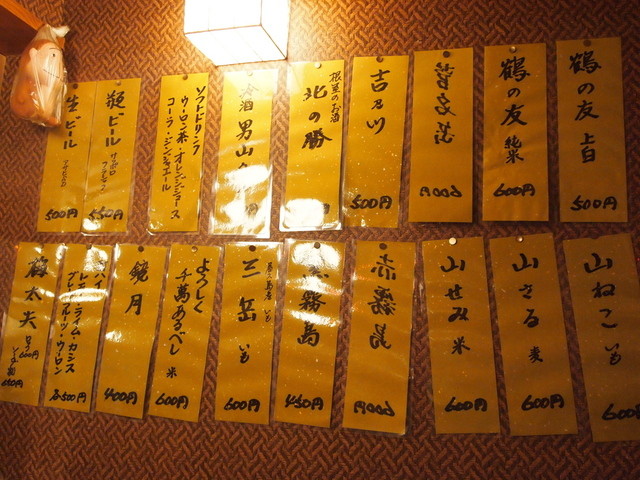 鶴の友 上白
500円
鶴の友 純米
600円
吉乃川
500円
根室のお酒
北の勝
冷酒 男山
ソフトドリンク
ウーロン茶・オレンジジュース
コーラ・ジンジャエール
瓶ビール
サッポロ
550円
生ビール
500円
山ねこ いも
600円
山さる 麦
600円
山せみ 米
600円
赤霧島
黒霧島
450円
三岳 いも
600円
よろしく
千萬あるべし 米
600円
鏡月
400円
ライム・カシス
グレープフルーツ・ウーロン
各500円
梅太夫